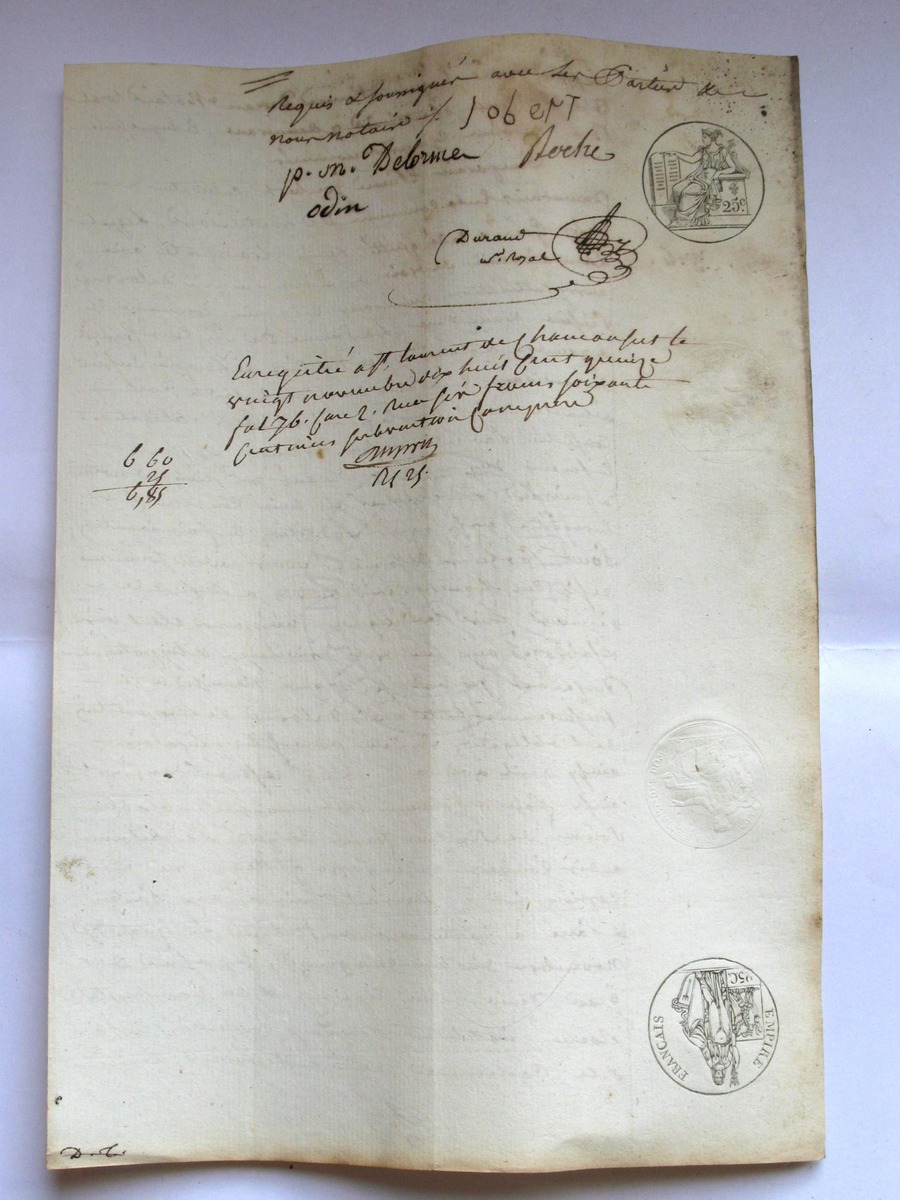 Requis & soussignés avec les Parties de
nous notaire /. Jobert
p. m. Delorme Roche
odin
25c
Durand
n.re royal
Enregistré a St. laurent de Chamousset le
vingt novembre dix huit Cent quinze
fol 76. Case 2. Reçu six francs soixante
Centimes subvention Comprise
6 60
25
6,85
25 C
EMPIRE
FRANÇAIS